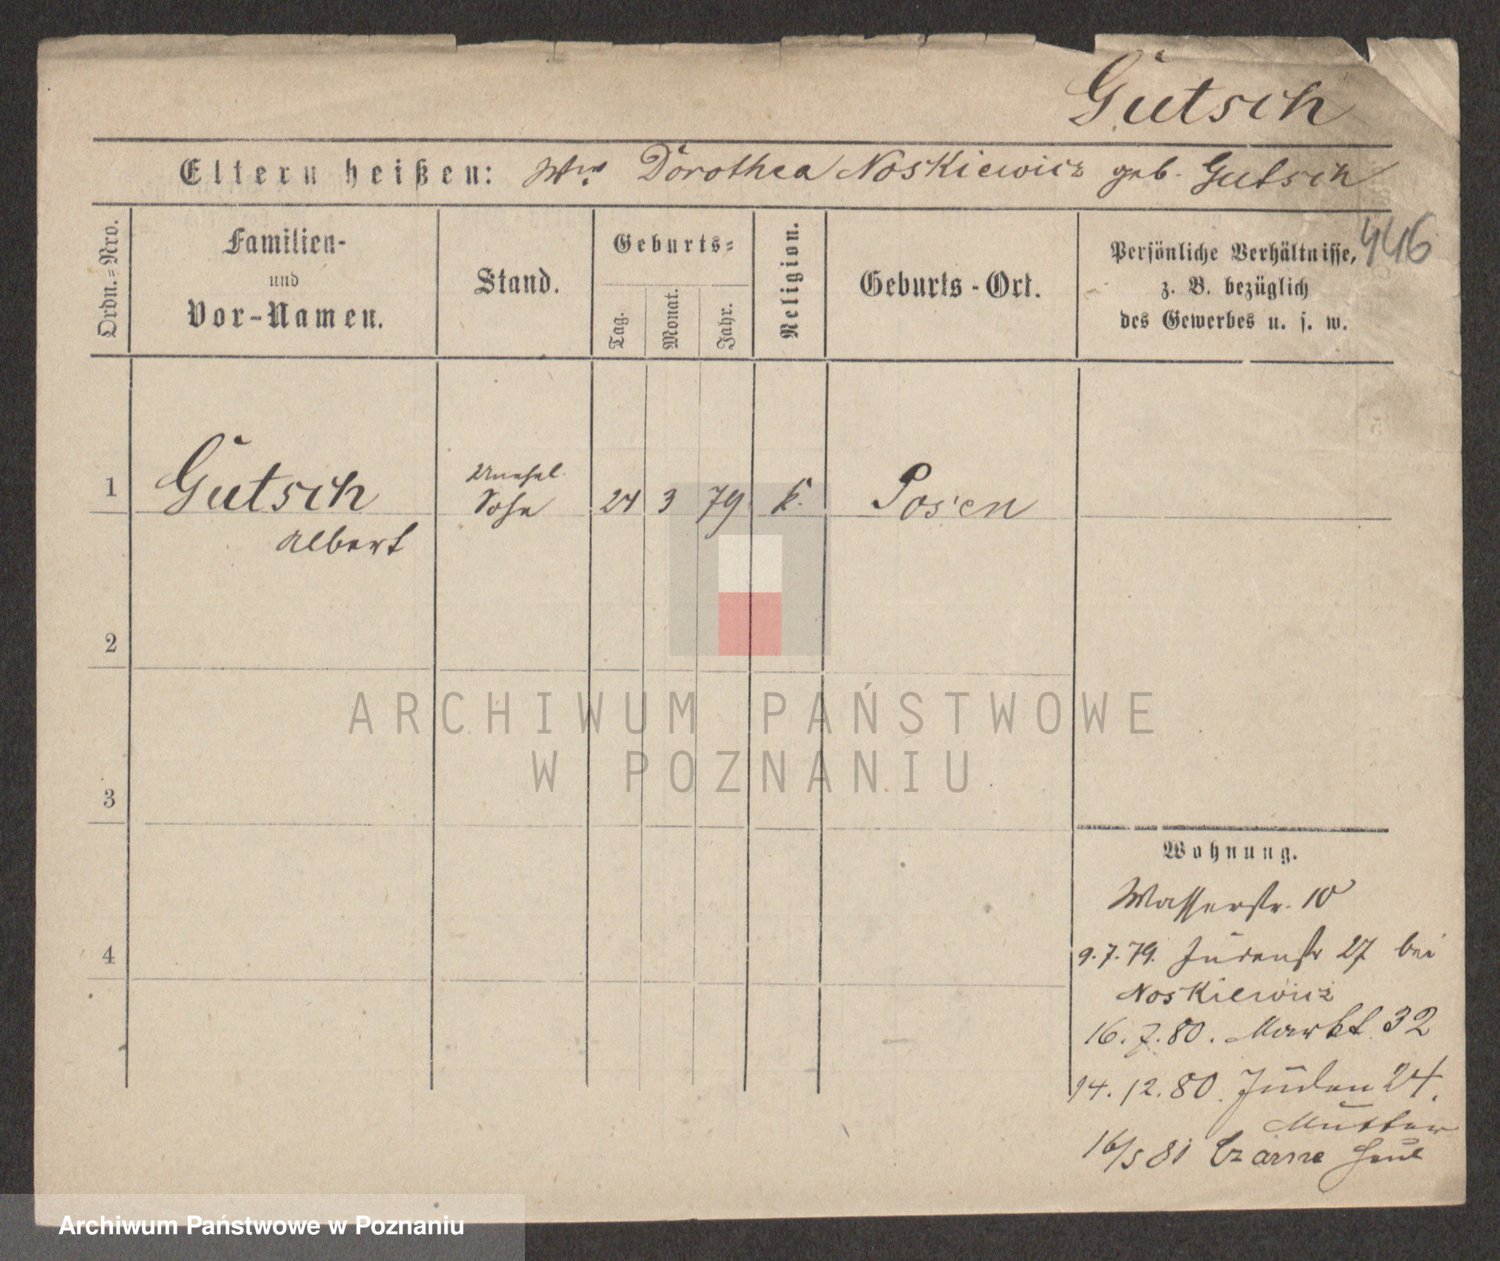 Gutsch
Eltern heißen: Wwe Dorothea Noskiewicz geb. Gutsch
Ordn.=Nro.
Familien-
und
Vor-Namen.
Stand.
Geburts=
Tag.
Monat.
Jahr.
Religion.
Geburts-Ort.
Persönliche Verhältnisse,
z. B. bezüglich
des Gewerbes u. s. w.
446
1
Gutsch
Albert
Unehel.
Sohn
24 3 79 k. Posen
2
3
4
Wohnung.
Wasserstr. 10
9.7.79. Judenstr 27 bei
Noskiewicz
16.7.80. Markt 32
14.12.80. Juden 24.
Mutter
16/5 81 Czarne
ARCHIWUM PAŃSTWOWE
W POZNANIU
Archiwum Państwowe w Poznaniu